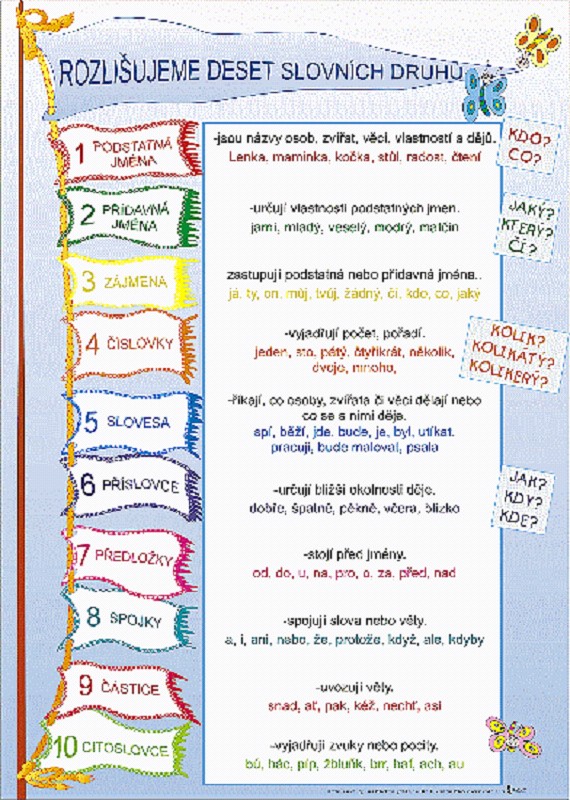 ROZLIŠUJEME DESET SLOVNÍCH DRUHŮ
1 PODSTATNÁ
JMÉNA
-jsou názvy osob, zvířat, věcí, vlastností a dějů.
Lenka, maminka, kočka, stůl, radost, čtení
KDO?
CO?
2 PŘÍDAVNÁ
JMÉNA
-určují vlastnosti podstatných jmen.
jarní, mladý, veselý, modrý, matčin
JAKÝ?
KTERÝ?
ČÍ?
3 ZÁJMENA
zastupují podstatná nebo přídavná jména..
já, ty, on, můj, tvůj, žádný, či, kdo, co, jaký
4 ČÍSLOVKY
-vyjadřují počet, pořadí.
jeden, sto, pátý, čtyřikrát, několik,
dvoje, mnoho,
KOLIK?
KOLIKÁTÝ?
KOLIKERÝ?
5 SLOVESA
-říkají, co osoby, zvířata či věci dělají nebo
co se s nimi děje.
spí, běží, jde, bude, je, byl, utíkat,
pracuji, bude maloval, psala
6 PŘÍSLOVCE
-určují bližší okolnosti děje.
dobře, špatně, pěkně, včera, blízko
JAK?
KDY?
KDE?
7 PŘEDLOŽKY
-stojí před jmény.
od, do, u, na, pro, o, za, před, nad
8 SPOJKY
-spojují slova nebo věty.
a, i, ani, nebo, že, protože, když, ale, kdyby
9 ČÁSTICE
-uvozují věty.
snad, ať, pak, kéž, nechť, asi
10 CITOSLOVCE
-vyjadřují zvuky nebo pocity.
bú, bác, píp, žbluňk, brr, haf, ach, au